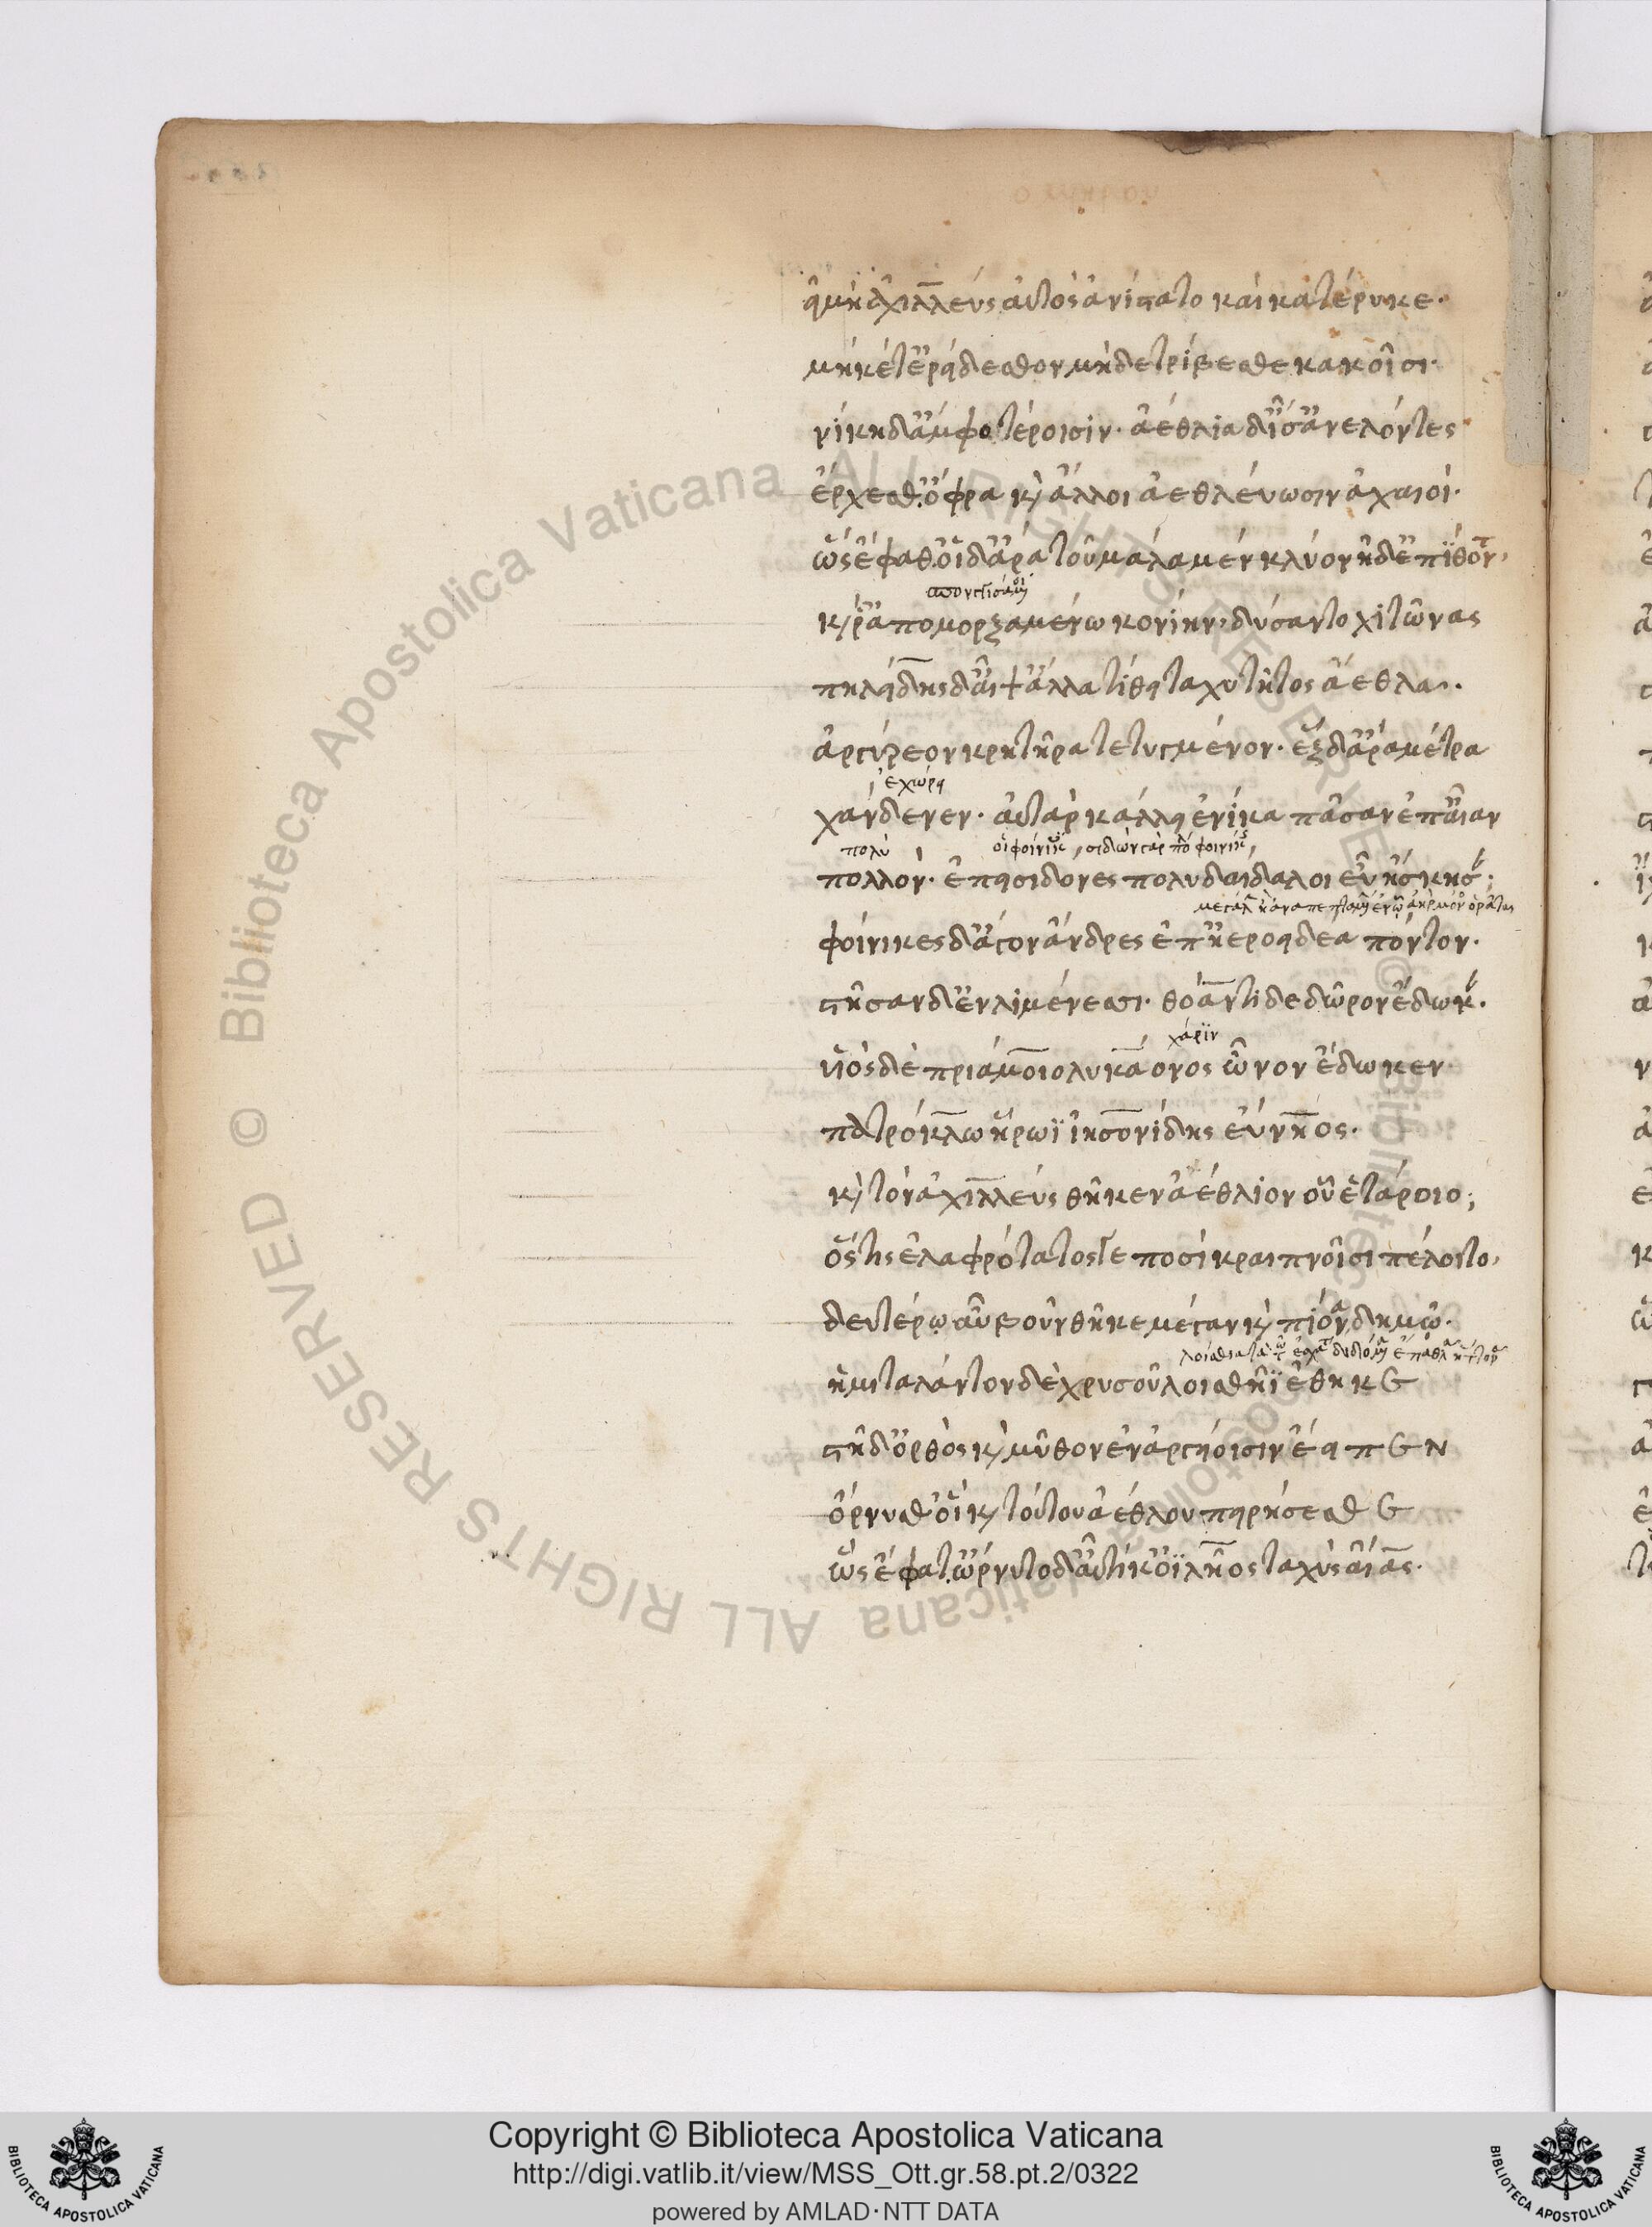 εἰ μὴ ἀχιλλεὺς αὐτὸς ἀνίστατο καὶ κατέρυκε·
μηκέτ' ἐρείδεσθον μὴ δὲ τρίβεσθε κακοῖσι·
νίκη δ' ἀμφοτέροισιν· ἀέθλια δ' ἶσ' ἀνελόντες
ἔρχεσθ' ὄφρα κỳ ἄλλοι ἀεθλεύωσιν ἀχαιοί·
ὣς ἔφαθ' οἱ δ' ἄρα τοῦ μάλα μὲν κλύον ἠδ' ἐπίθοντο,
ἀπομορξαμένω κονίην, δύσαντο χιτῶνας
πηλείδης δ' αἶψ' ἄλλα τίθει ταχυτῆτος ἄεθλα·
ἀργύρεον κρητῆρα τετυγμένον· ἓξ δ' ἄρα μέτρα
ἐχώρει
χάνδενεν· αὐτὰρ κάλλει ἐνίκα πᾶσαν ἐπ' αἶαν
πολὺ
πολλόν· ἐπεὶ σιδόνες πολυδαίδαλοι εὖ ἤσκησαν·
φοίνικες δ' ἄγον ἄνδρες ἐπ' ἠεροειδέα πόντον·
στῆσαν δ' ἐν λιμένεσσι· θόαντι δὲ δῶρον ἔδωκαν·
χάριν
υἷος δὲ πριάμοιο λυκάονος ὦνον ἔδωκεν
πατρόκλω ἥρωϊ ἰησονίδης εὔνηος·
καὶ τὸν ἀχιλλεὺς θῆκεν ἀέθλιον οὗ ἑτάροιο;
ὅς τις ἐλαφρότατός γε ποσὶ κραιπνοῖσι πέλοιτο,
δευτέρῳ αὖ βοῦν θῆκε μέγαν καὶ πίονα δημῶ·
ἡμιτάλαντον δὲ χρυσοῦ λοισθήϊ ἔθηκε
στῆ δ' ὀρθὸς καὶ μῦθον ἐν ἀργείοισιν ἔειπεν
ὄρνυσθ' οἳ καὶ τούτου ἀέθλου πειρήσεσθε
ὣς ἔφατ' ὤρνυτο δ' αὐτίκ' ὀϊλῆος ταχὺς αἴας·
Copyright © Biblioteca Apostolica Vaticana
http://digi.vatlib.it/view/MSS_Ott.gr.58.pt.2/0322
powered by AMLAD·NTT DATA